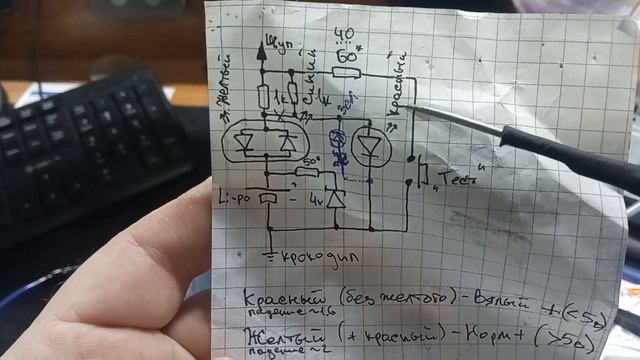 Щуп
40
60*
Желтый
Синий
Красный
1к
50*
"Тест"
Li-po
+
-
4v
крокодил
Красный (без желтого) - Вялый + (<5в)
падение ~1,6
Желтый (+ красный) - Норм + (>5в)
падение ~2